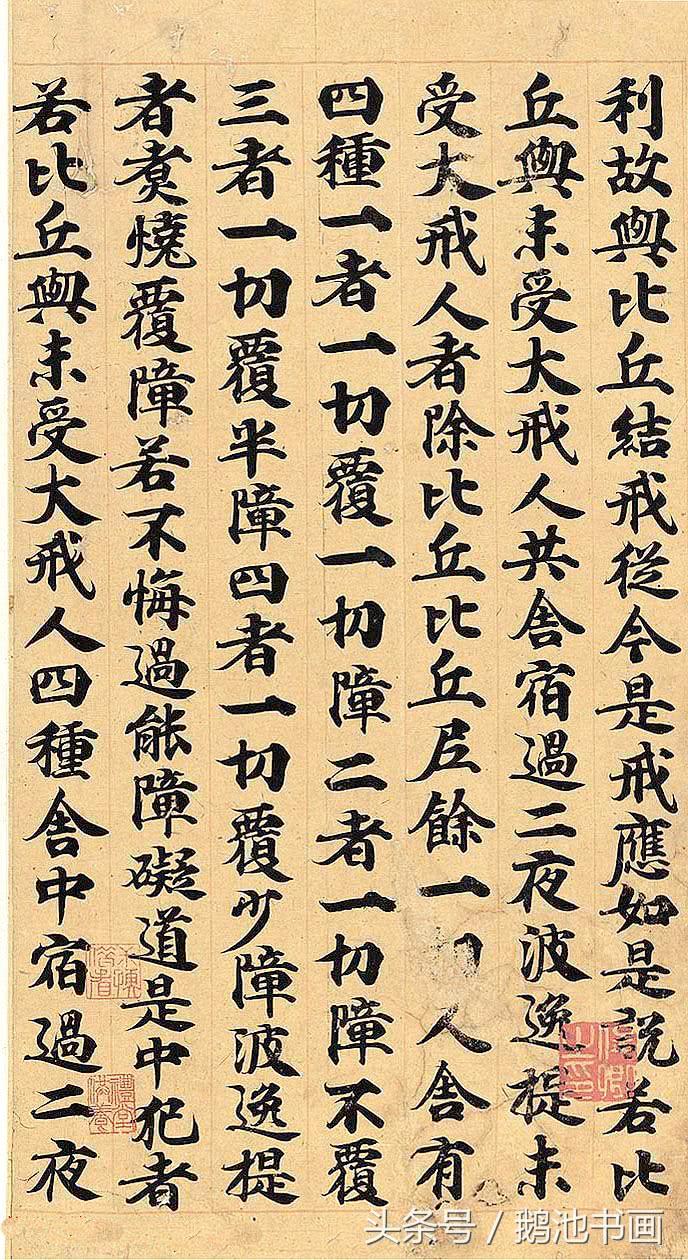 利故與比丘結戒從今是戒應如是說若比
丘與未受大戒人共舍宿過二夜波逸提未
受大戒人者除比丘比丘尼餘一切人舍有
四種一者一切覆一切障二者一切障不覆
三者一切覆半障四者一切覆少障波逸提
者煑燒覆障若不悔過能障礙道是中犯者
若比丘與未受大戒人四種舍中宿過二夜
头条号 / 鹅池书画